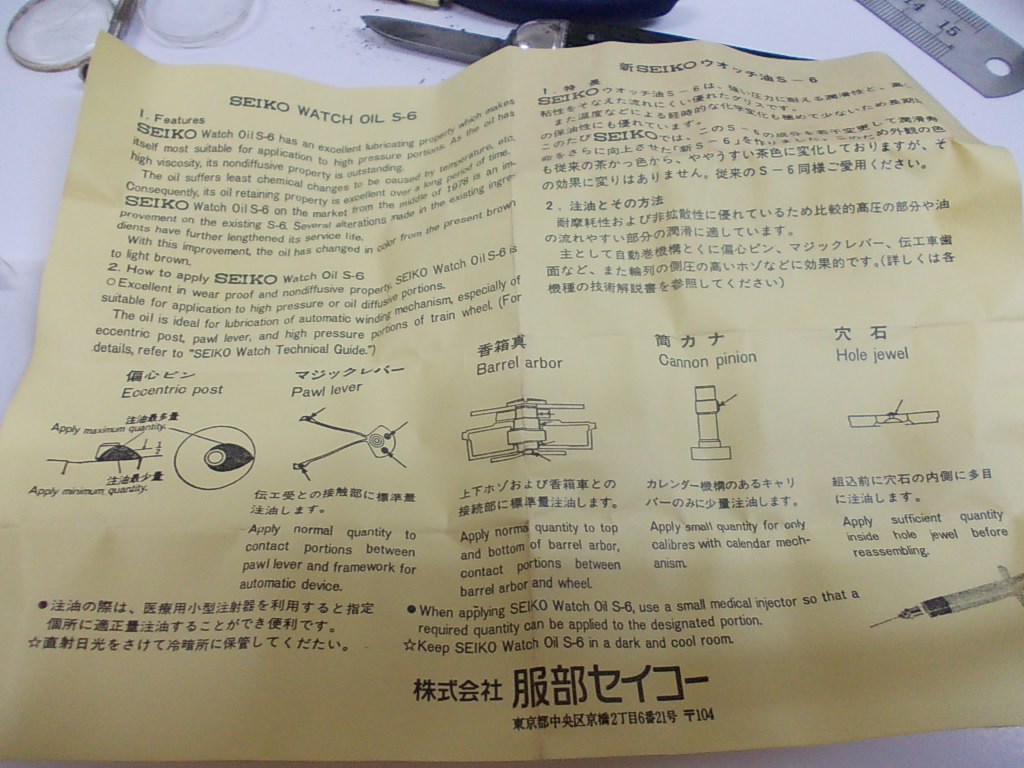 SEIKO WATCH OIL S-6
1. Features
SEIKO Watch Oil S-6 has an excellent lubricating property which makes
itself most suitable for application to high pressure portions. As the oil has
high viscosity, its nondiffusive property is outstanding.
The oil suffers least chemical changes to be caused by temperature, etc.
Consequently, its oil retaining property is excellent over a long period of time.
SEIKO Watch Oil S-6 on the market from the middle of 1978 is an im-
provement on the existing S-6. Several alterations made in the existing ingre-
dients have further lengthened its service life.
With this improvement, the oil has changed in color from the present brown
to light brown.
2. How to apply SEIKO Watch Oil S-6
○Excellent in wear proof and nondiffusive property, SEIKO Watch Oil S-6 is
suitable for application to high pressure or oil diffusive portions.
The oil is ideal for lubrication of automatic winding mechanism, especially of
eccentric post, pawl lever, and high pressure portions of train wheel. (For
details, refer to "SEIKO Watch Technical Guide.")
新SEIKOウオッチ油S−6
1. 特長
SEIKOウオッチ油S−6は、強い圧力に耐える潤滑性と、高い
粘性をそなえた流れにくい優れたグリスです。
また温度などによる経時的な化学変化も極めて少ないため長期
の保油性にも優れています。
このたびSEIKOでは、このS−6の成分を若干変更して潤滑寿
命をさらに向上させた「新S−6」を ため外観の色
も従来の茶かっ色から、ややうすい茶色に変化しておりますが、そ
の効果に変りはありません。従来のS−6同様ご愛用ください。
2. 注油とその方法
耐摩耗性および非拡散性に優れているため比較的高圧の部分や油
の流れやすい部分の潤滑に適しています。
主として自動巻機構とくに偏心ピン、マジックレバー、伝エ車歯
面など、また輪列の側圧の高いホゾなどに効果的です。(詳しくは各
機種の技術解説書を参照してください)
偏心ピン
Eccentric post
注油最多量
Apply maximum quantity.
1/2
注油最少量
Apply minimum quantity.
マジックレバー
Pawl lever
伝エ受との接触部に標準量
注油します。
Apply normal quantity to
contact portions between
pawl lever and framework for
automatic device.
香箱真
Barrel arbor
上下ホゾおよび香箱車との
接続部に標準量注油します。
Apply normal quantity to top
and bottom of barrel arbor,
contact portions between
barrel arbor and wheel.
筒カナ
Cannon pinion
カレンダー機構のあるキャリ
バーのみに少量注油します。
Apply small quantity for only
calibres with calendar mech-
anism.
穴石
Hole jewel
組込前に穴石の内側に多目
に注油します。
Apply sufficient quantity
inside hole jewel before
reassembling.
●注油の際は、医療用小型注射器を利用すると指定
個所に適正量注油することができ便利です。
☆直射日光をさけて冷暗所に保管してください。
●When applying SEIKO Watch Oil S-6, use a small medical injector so that a
required quantity can be applied to the designated portion.
☆Keep SEIKO Watch Oil S-6 in a dark and cool room.
株式会社 服部セイコー
東京都中央区京橋2丁目6番21号 〒104
14 15